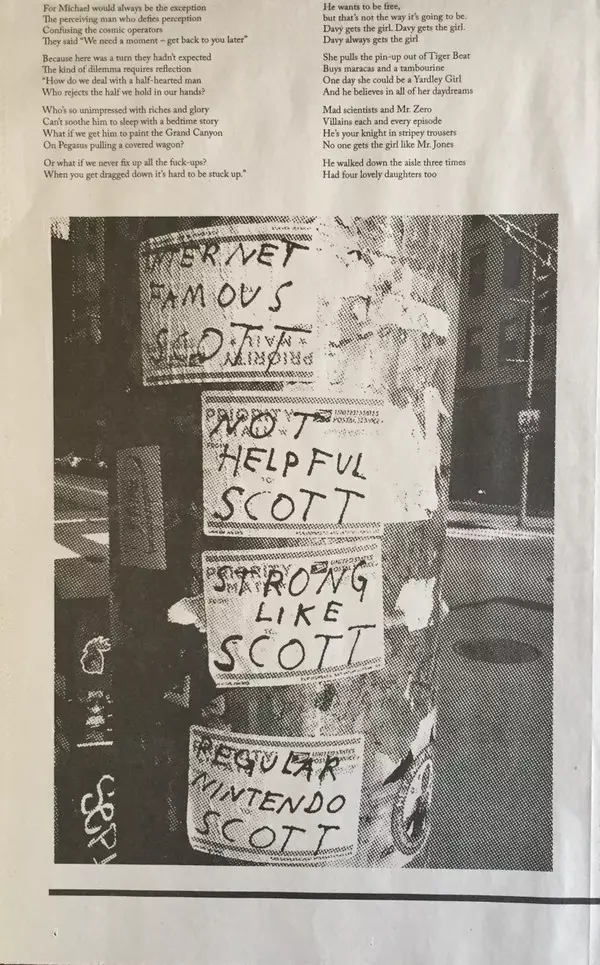 For Michael would always be the exception
The perceiving man who defies perception
Confusing the cosmic operators
They said “We need a moment – get back to you later”
Because here was a turn they hadn't expected
The kind of dilemma requires reflection
“How do we deal with a half-hearted man
Who rejects the half we hold in our hands?
Who's so unimpressed with riches and glory
Can't soothe him to sleep with a bedtime story
What if we get him to paint the Grand Canyon
On Pegasus pulling a covered wagon?
Or what if we never fix up all the fuck-ups?
When you get dragged down it's hard to be stuck up.”
He wants to be free,
but that's not the way it's going to be.
Davy gets the girl. Davy gets the girl.
Davy always gets the girl
She pulls the pin-up out of Tiger Beat
Buys maracas and a tambourine
One day she could be a Yardley Girl
And he believes in all of her daydreams
Mad scientists and Mr. Zero
Villains each and every episode
He's your knight in stripey trousers
No one gets the girl like Mr. Jones
He walked down the aisle three times
Had four lovely daughters too
INTERNET
FAMOUS
SCOTT
PRIORITY
MAIL
PRIORITY
MAIL
UNITED STATES
POSTAL SERVICE
NOT
HELPFUL
SCOTT
PRIORITY
MAIL
UNITED STATES
POSTAL SERVICE
STRONG
LIKE
SCOTT
UNITED STATES
POSTAL SERVICE
REGULAR
NINTENDO
SCOTT